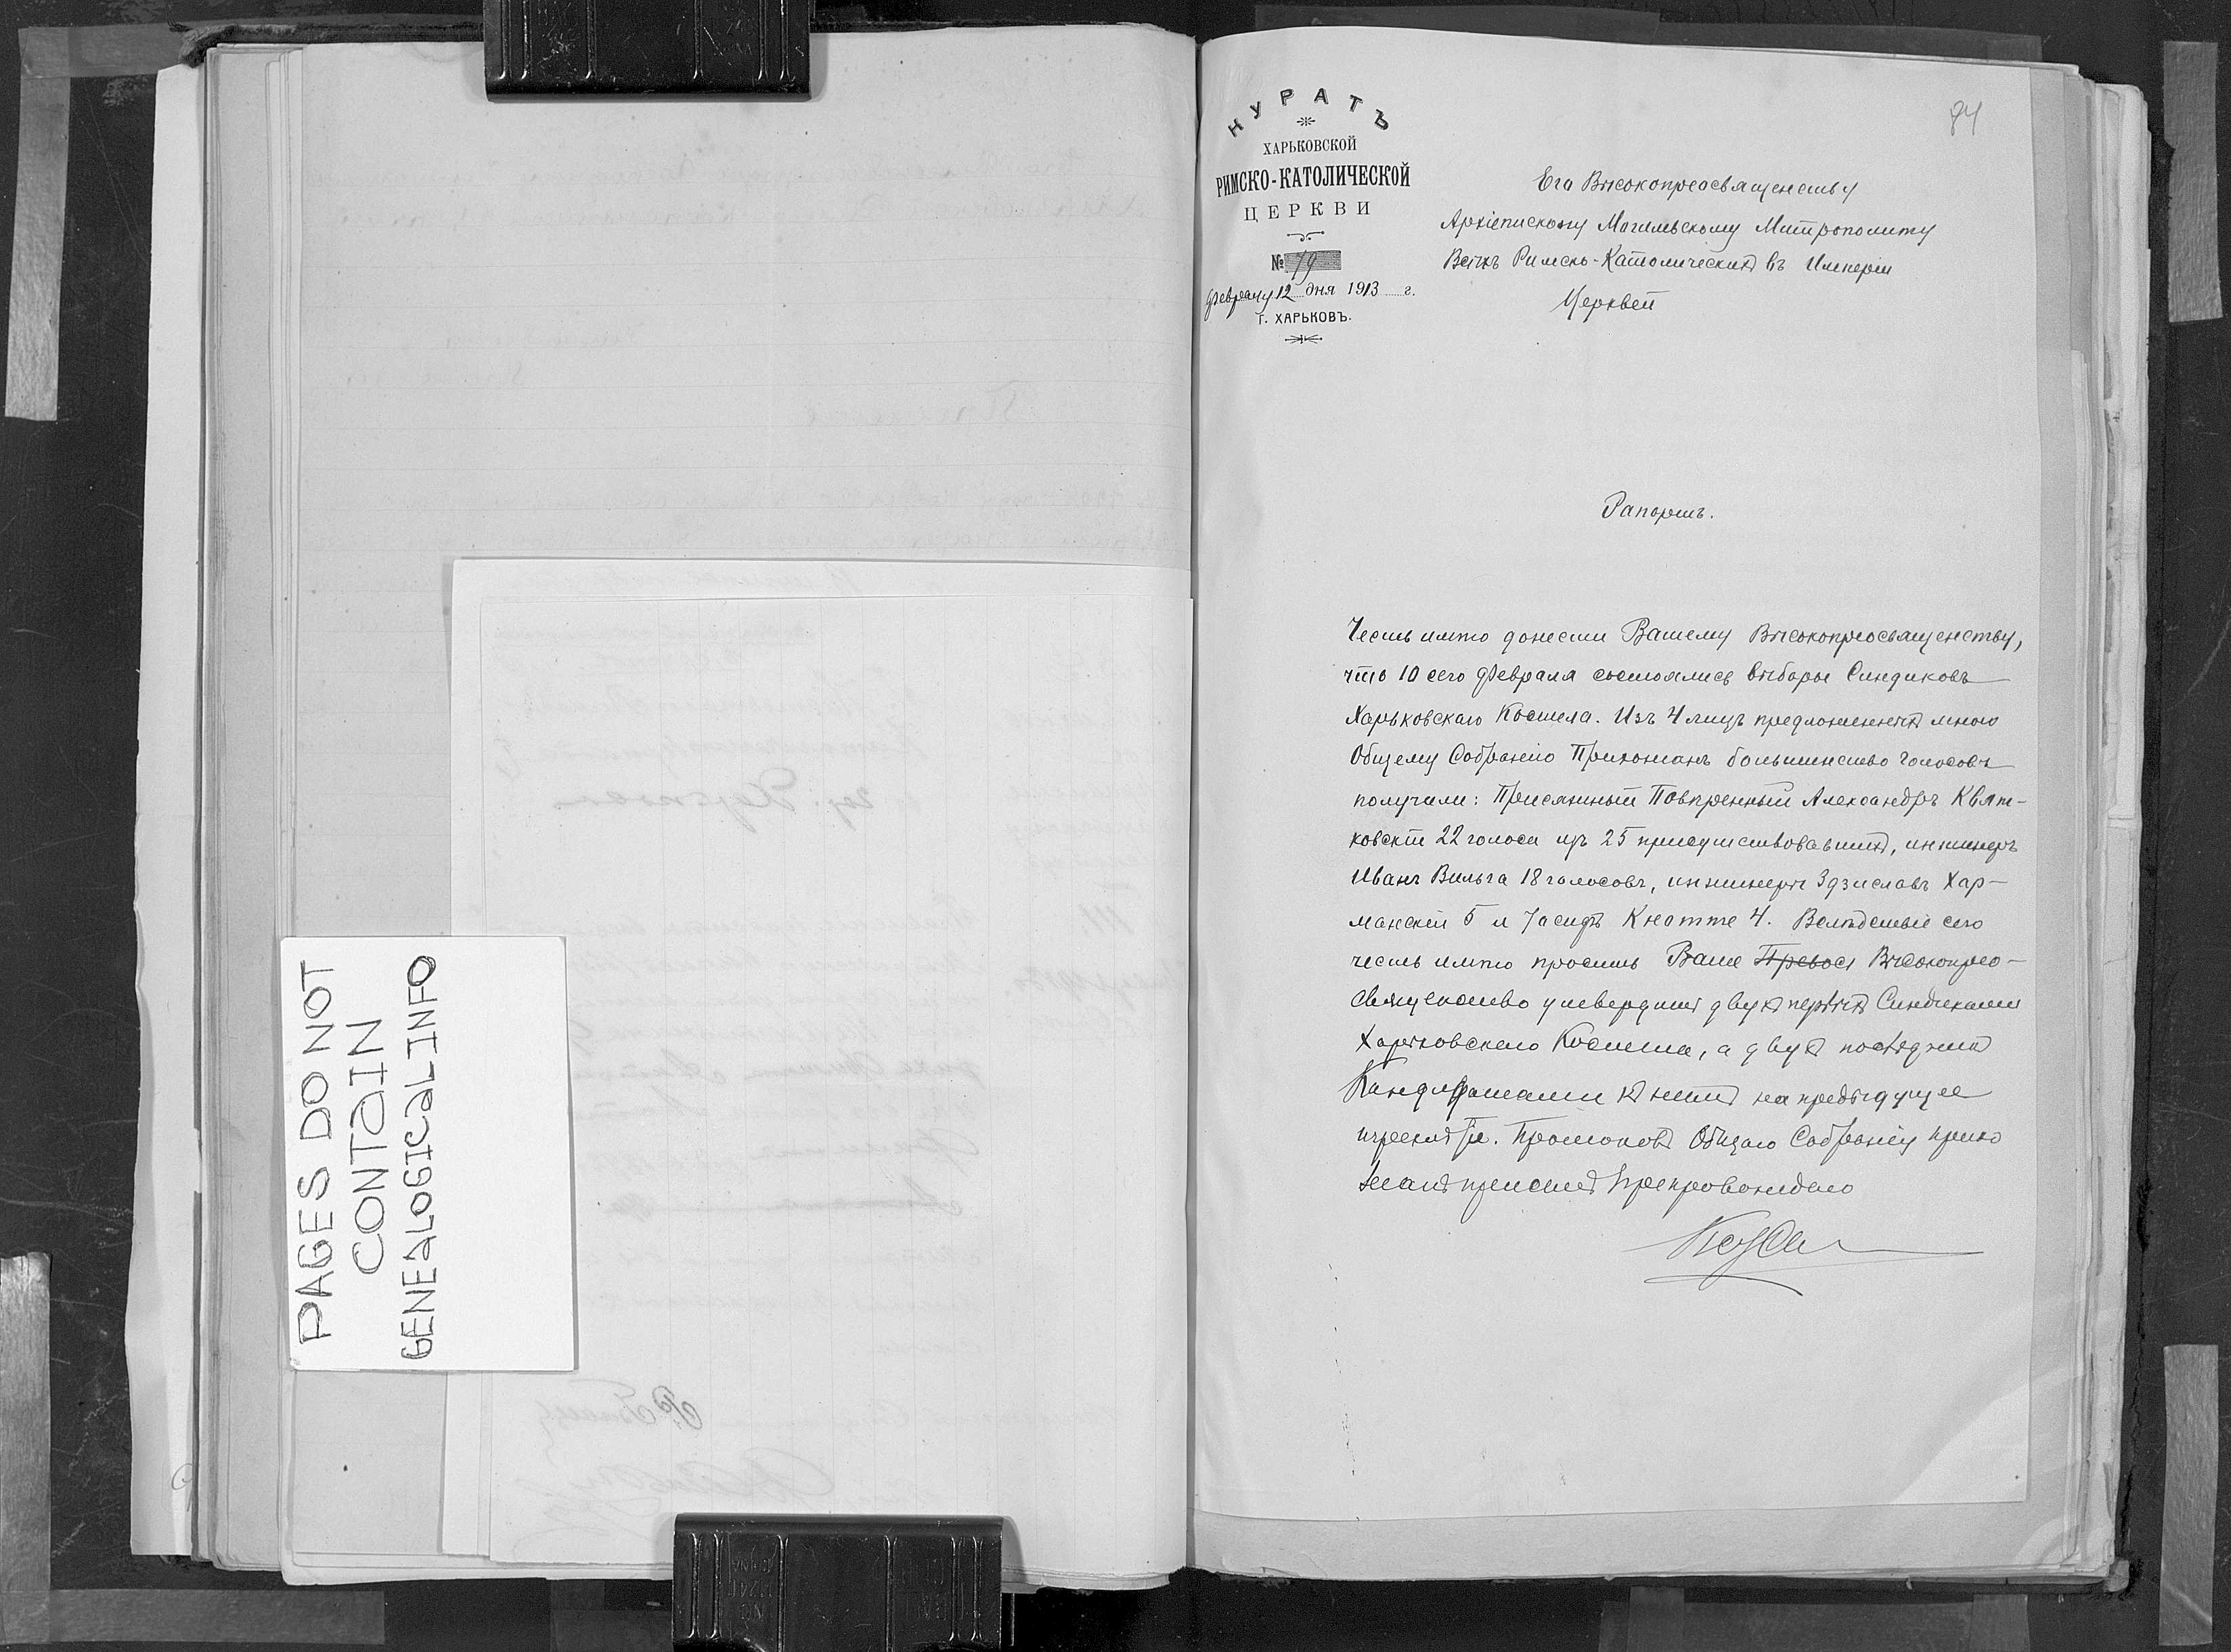 PAGES DO NOT
CONTAIN
GENEALOGICAL INFO
84
КУРАТЪ
ХАРЬКОВСКОЙ
РИМСКО-КАТОЛИЧЕСКОЙ
ЦЕРКВИ
№ 79
Февраля 12 дня 1913 г.
Г. ХАРЬКОВЪ.
Его Высокопреосвященству
Архіепископу Могилевскому Митрополиту
Всѣхъ Римско-Католическихъ въ Имперіи
Церквей
Рапортъ.
Честь имѣю донести Вашему Высокопреосвященству,
что 10 сего Февраля состоялись выборы Синдиковъ
Харьковскаго Костела. Изъ 4 лицъ предложенныхъ мною
Общему Собранію Прихожанъ большинство голосовъ
получили: Присяжный Повѣренный Александръ Квят-
ковскій 22 голоса изъ 25 присутствовавшихъ, инженеръ
Иванъ Вильга 18 голосовъ, инженеръ Здзиславъ Хар-
манскій 5 и Кнотте 4. Вслѣдствіе сего
честь имѣю просить Ваше Превос Высокопрео-
священство утвердить двухъ первыхъ Синдиками
Харьковскаго Костела, а двухъ послѣднихъ
Кандидатами къ нимъ на предыдущее
трехлѣтіе. Протоколъ Общаго Собранія прихо
жанъ присемъ препровождаю